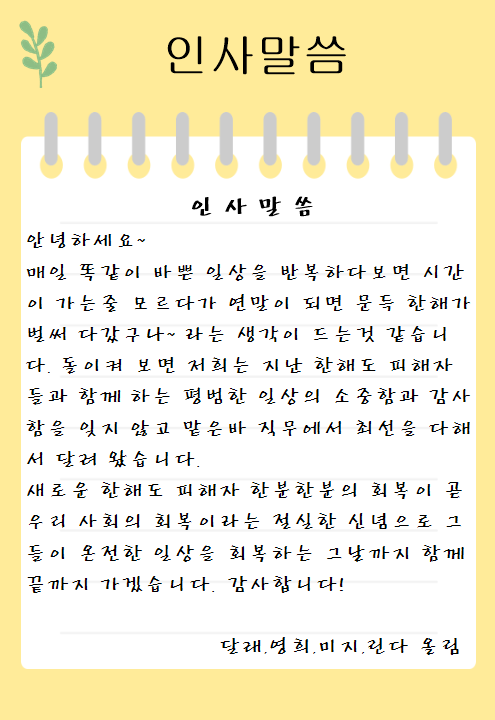 인사말씀
인 사 말 씀
안녕하세요~
매일 똑같이 바쁜 일상을 반복하다보면 시간
이 가는줄 모르다가 연말이 되면 문득 한해가
벌써 다갔구나~ 라는 생각이 드는것 같습니
다. 돌이켜 보면 저희는 지난 한해도 피해자
들과 함께 하는 평범한 일상의 소중함과 감사
함을 잊지 않고 맡은바 직무에서 최선을 다해
서 달려 왔습니다.
새로운 한해도 피해자 한분한분의 회복이 곧
우리 사회의 회복이라는 절실한 신념으로 그
들이 온전한 일상을 회복하는 그날까지 함께
끝까지 가겠습니다. 감사합니다!
달래,영희,미지,린다 올림